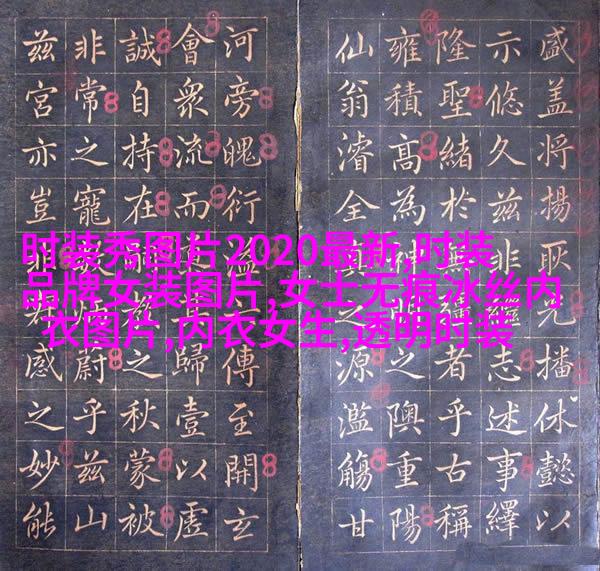 盛盖将揚耿光播休懿以
示悠久兹非志述事繹
隆聖緒於無疆者乎古稱
雍積高為神明之隩重陽
仙翁濬全真之源濫觴甘
河旁魄衍溢傳至開玄
會衆流而歸壹以虛
誠自持在之秋蒙被
非常之寵蔚乎兹山
兹宮亦豈非感之妙能
时装秀图片2020最新,时装
品牌女装图片,女士无痕冰丝内
衣图片,内衣女生,透明时装